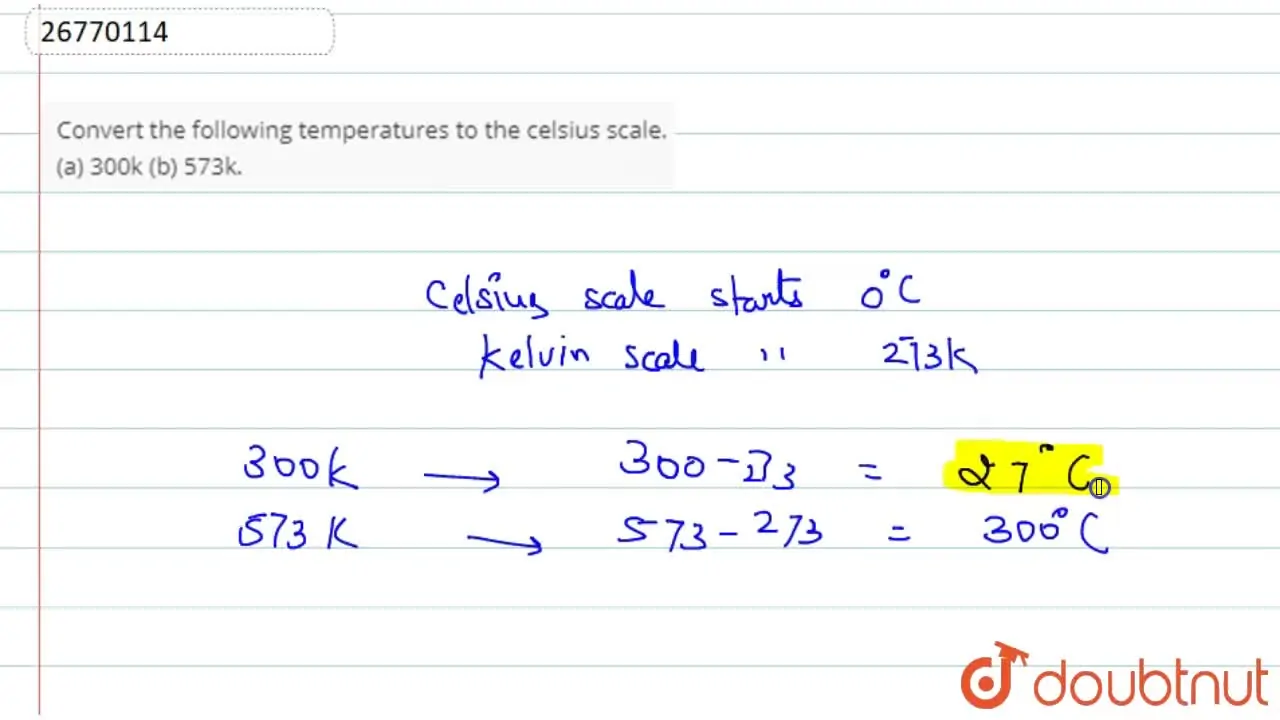 26770114
Convert the following temperatures to the celsius scale.
(a) 300k (b) 573k.
Celsius scale starts 0°C
Kelvin scale '' 273K
300k → 300-273 = 27°C
573K → 573-273 = 300°C
doubtnut